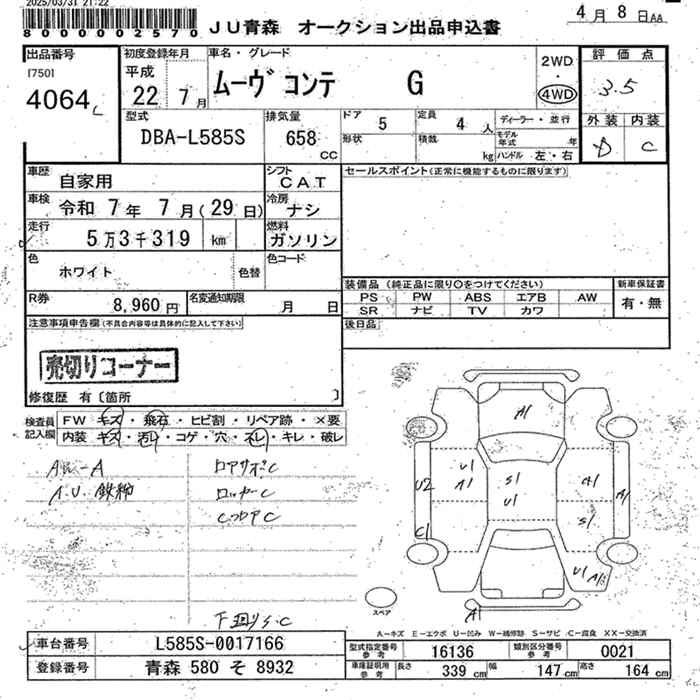 2025/03/31 21:22
8000002570
JU青森 オークション出品申込書
4月8日AA
出品番号
[750]
4064
初度登録年月
平成
22 7月
車名・グレード
ムーヴ コンテ G
2WD
・
4WD
評価点
3.5
外装 内装
D C
型式
DBA-L585S
排気量
658
CC
ドア
5
形状
定員
4 人
積載
kg
ディーラー・並行
モデル
年式 年
ハンドル 左・右
車歴
自家用
シフト
CAT
車検
令和 7年 7月(29日)
冷房
ナシ
走行
5万3千319 km
燃料
ガソリン
色
ホワイト
色替
色コード
R券
8,960円
名変通知期限
月 日
セールスポイント(正常に機能するものに限ります)
装備品 (純正品に限り○をつけてください)
PS PW ABS エアB AW
SR ナビ TV カワ
新車保証書
有・無
後日品
注意事項申告欄(不具合内容等は具体的に記入して下さい)
売切りコーナー
修復歴 有〔箇所 〕
検査員
記入欄
FW キズ・飛石・ヒビ割・リペア跡・×要
内装 キズ・汚レ・コゲ・穴・スレ・キレ・破レ
A.U.
ロッカーC
下廻りS.C
A1
U1
A1
S1
U1
U2
C1
A1
S1
A1
U1
A1
スペア
A-キズ E-エクボ U-凹み W-補修跡 S-サビ C-腐食 XX-交換済
車台番号 L585S-0017166
登録番号 青森 580 そ 8932
型式指定番号
参考
16136
類別区分番号
参考
0021
車庫証明用
参考
長さ 339 cm 幅 147 cm 高さ 164 cm